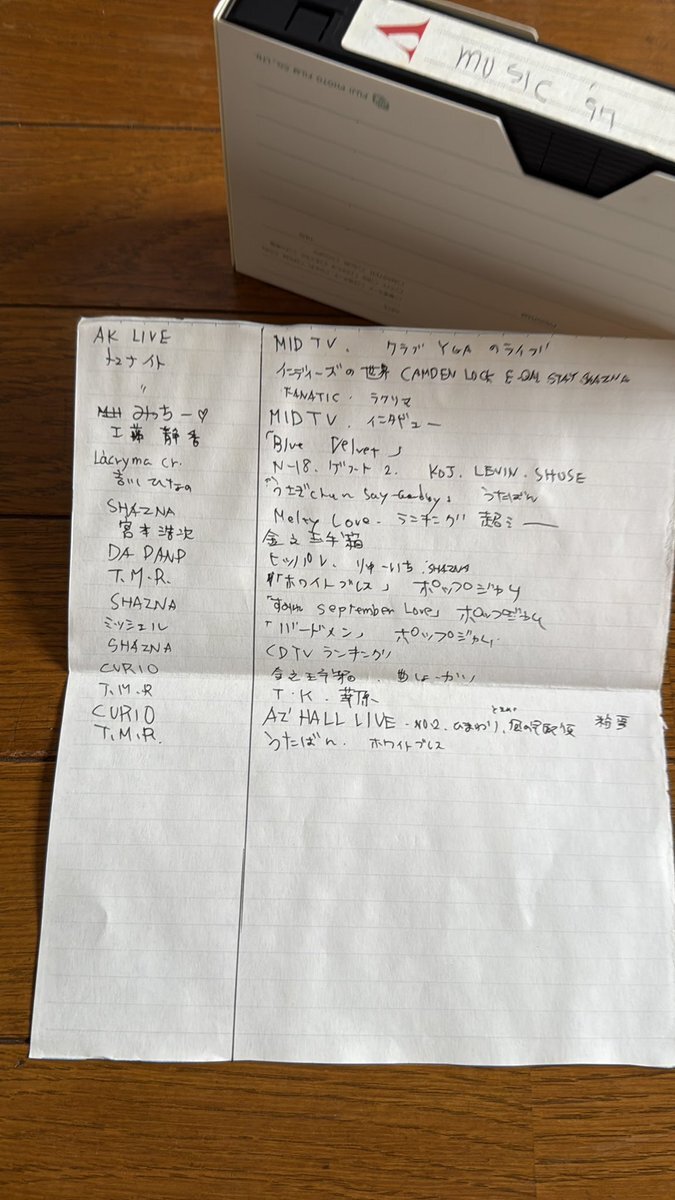 MUSIC '97
FUJI PHOTO FILM CO., LTD.
AK LIVE MID TV. クラブ YGA のライブ
トゥナイト インディーズの世界 CAMDEN LOCK SHAZNA
〃 FANATIC・ラクリマ
みっちー♡ MID TV. インタビュー
工藤 静香 「Blue Velvet」
Lacryma Cr. N-18. ゲスト 2. KOJ. LEVIN. SHUSE
言いしひなの say-goodbye」 うたばん
SHAZNA Melty Love. ランキング 超ミー
宮本浩次 金之玉手箱
DA PAMP ヒッパレ. りゅーいち. SHAZNA
T.M.R. 「ホワイトブレス」 ポップジャム
SHAZNA September Love」 ポップジャム
ミッシェル 「バードメン」 ポップジャム
SHAZNA CDTV ランキング
CURIO 金之玉手箱.
T.M.R T.K.
CURIO AZ' HALL LIVE - NO.2. ひまわり、
T.M.R. うたばん. ホワイトブレス